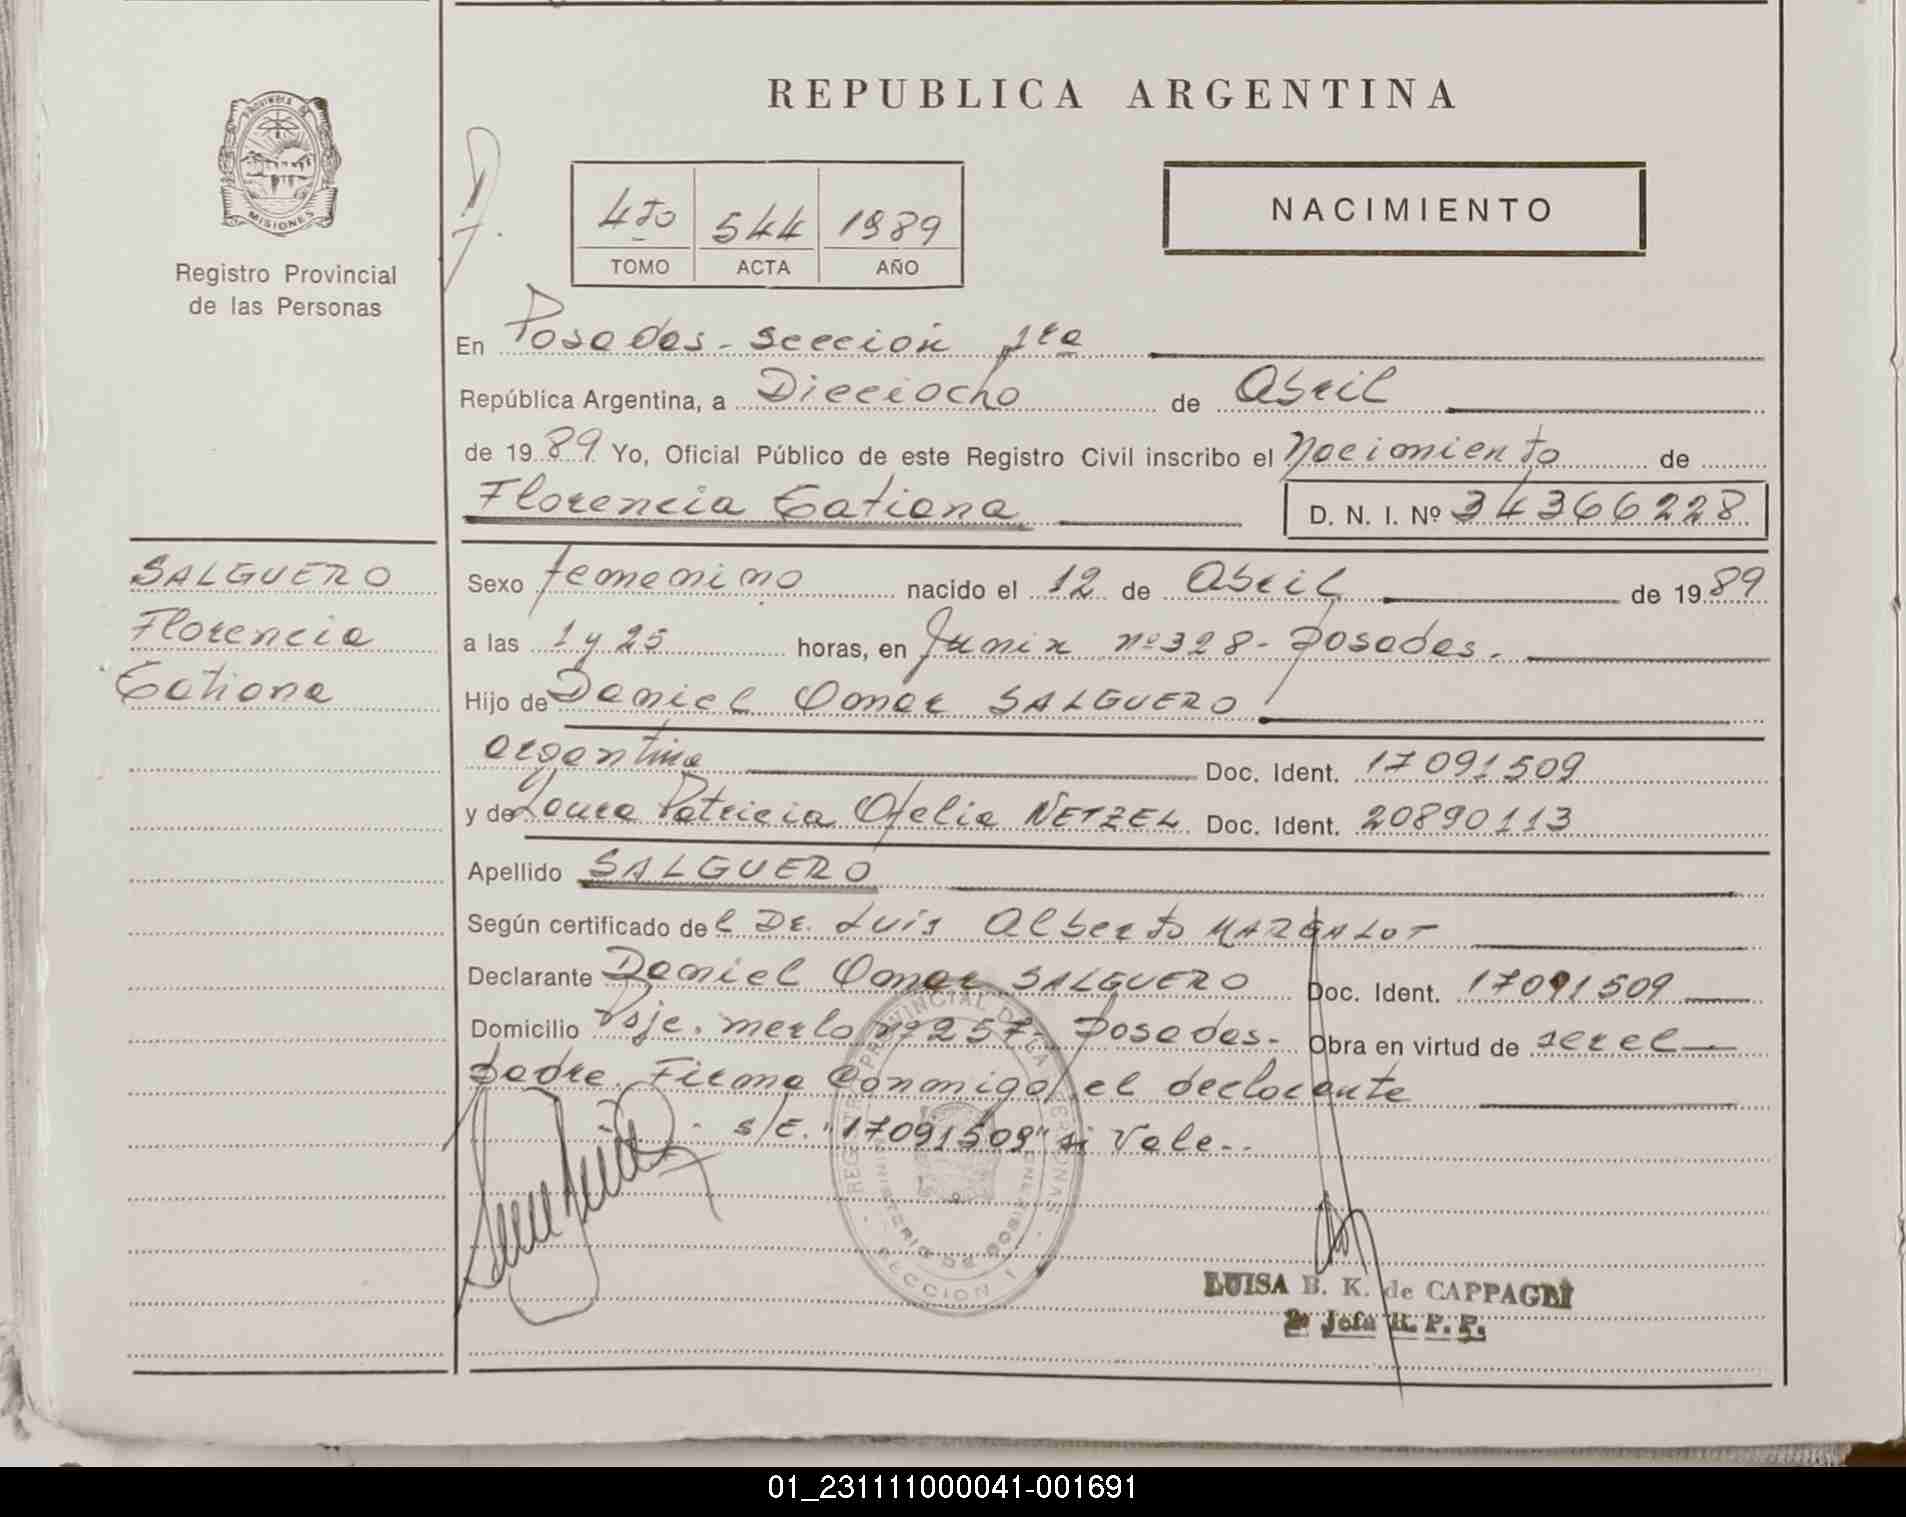 REPUBLICA ARGENTINA
PROVINCIA DE
MISIONES
Registro Provincial
de las Personas
4to 544 1989
TOMO ACTA AÑO
NACIMIENTO
En Posadas - Seccion 1ra
República Argentina, a Dieciocho de Abril
de 1989 Yo, Oficial Público de este Registro Civil inscribo el Nacimiento de
Florencia Tatiana D. N. I. Nº 34366228
SALGUERO
Florencia
Tatiana
Sexo femenino nacido el 12 de Abril de 1989
a las 1 y 25 horas, en Junin nº 328 - Posadas.
Hijo de Daniel Omar SALGUERO
argentina Doc. Ident. 17091509
y de Laura Patricia Ofelia NETZEL Doc. Ident. 20890113
Apellido SALGUERO
Según certificado del Dr. Luis Alberto MARGALOT
Declarante Daniel Omar SALGUERO Doc. Ident. 17091509
Domicilio Psje. Merlo nº 257 - Posadas - Obra en virtud de ser el
padre. Firma conmigo el declarante
s/E. "17091509" si Vale -.
REGISTRO PROVINCIAL DE LAS PERSONAS
MINISTERIO DE GOBIERNO
SECCION 1
LUISA B. K. de CAPPAGLI
2ª Jefa R. P. P.
01_231111000041-001691